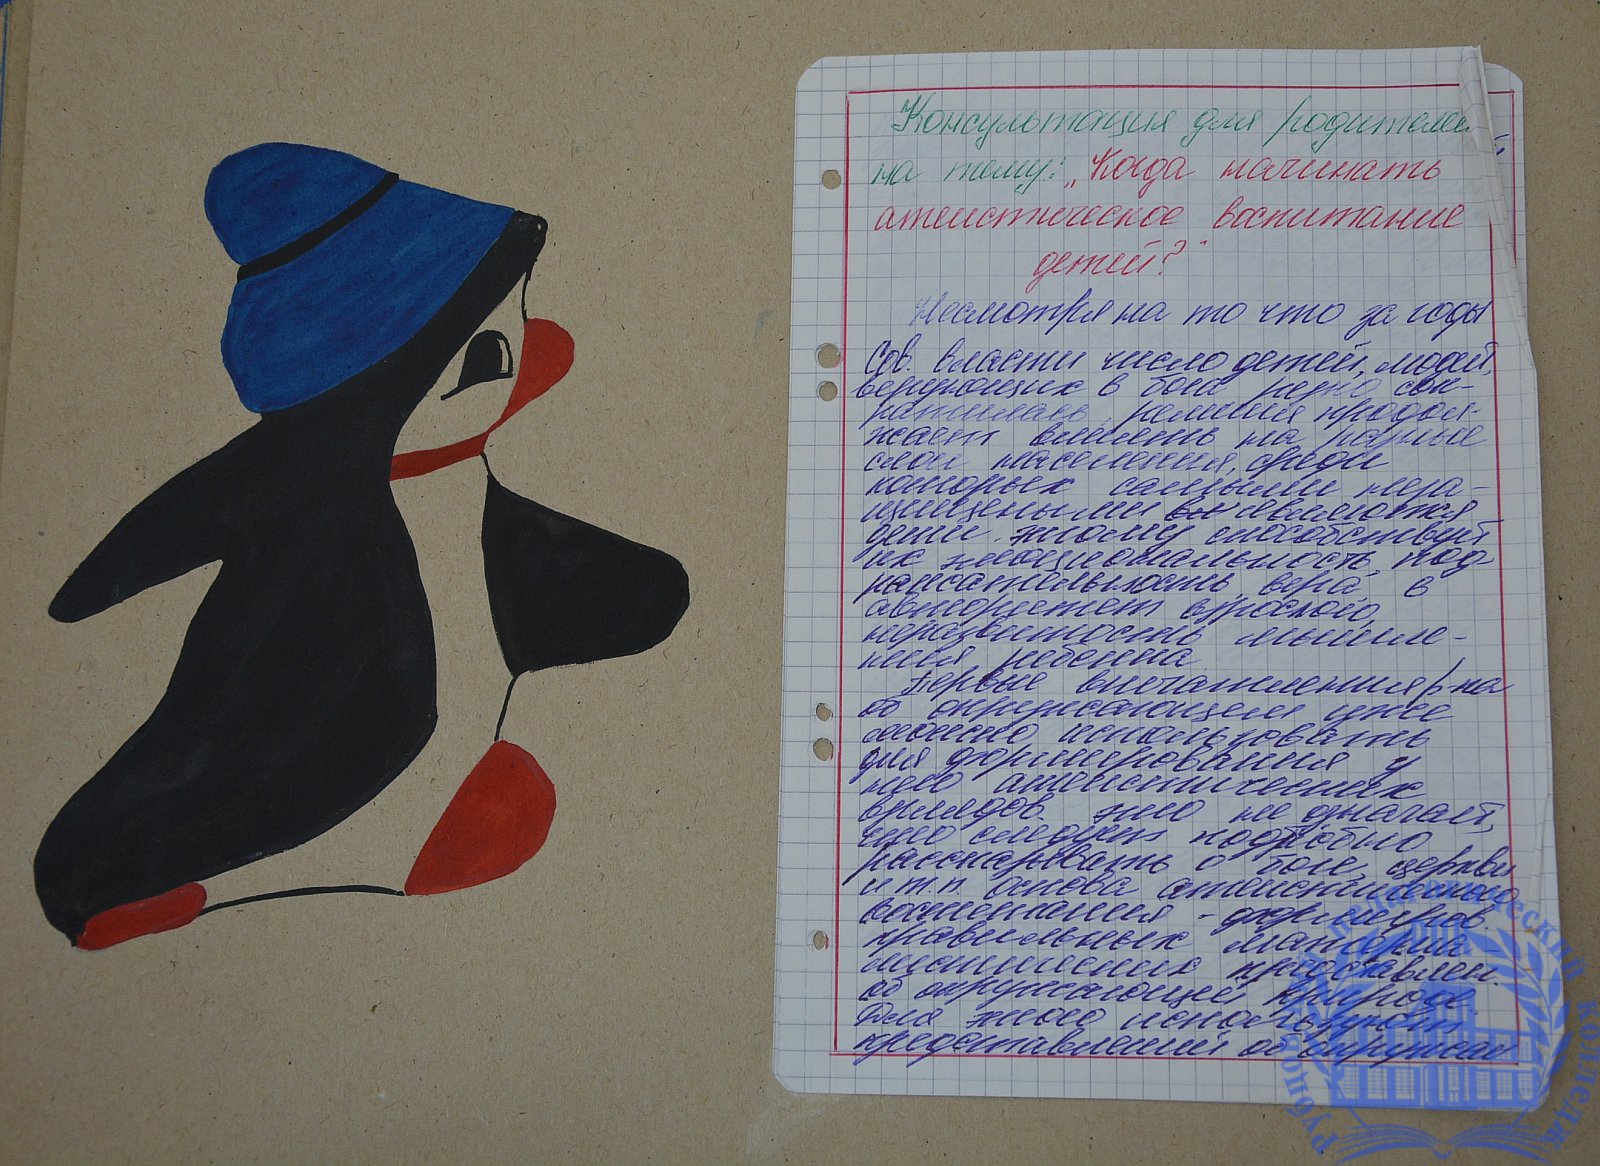 Консультация для родителей
на тему: „Когда начинать
атеистическое воспитание
детей?"
Несмотря на то что за годы
Сов. власти число детей, людей,
верующих в бога резко сок-
ратилась, религия продол-
жает влиять на разные
слои населения, среди
которых самыми неза-
щищеными являются
дети. Этому способствует
их эмоциональность, под-
ражательность, вера в
авторитет взрослого,
неразвитость мышле-
ния ребенка.
Первые впечатления р-ка
об окружающем уже
можно использовать
для формирования у
него атеистических
взглядов. Это не означает,
что следует подробно
рассказывать о боге, церкви
и т.п. Основа атеистического
воспитания - формиров.
правильных материа-
листических представлен.
об окружающей природе.
Для этого используют
представлений об окружаю
Рубцовский педагогический колледж